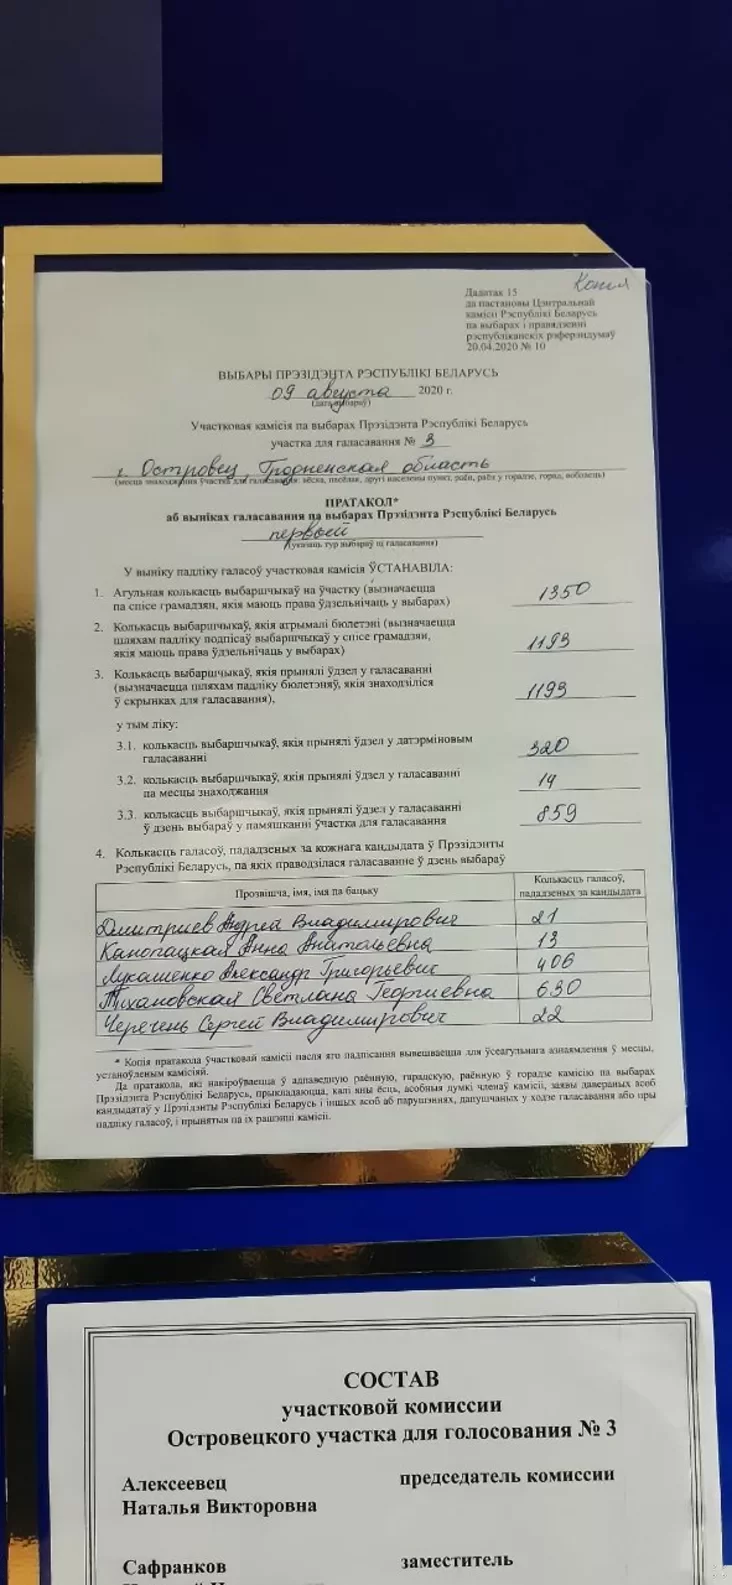 Копия
Дадатак 15
да пастановы Цэнтральнай
камісіі Рэспублікі Беларусь
па выбарах і правядзенні
рэспубліканскіх рэферэндумаў
20.04.2020 № 10
ВЫБАРЫ ПРЭЗІДЭНТА РЭСПУБЛІКІ БЕЛАРУСЬ
09 августа 2020 г.
(дата выбараў)
Участковая камісія па выбарах Прэзідэнта Рэспублікі Беларусь
участка для галасавання № 3
г. Островец, Гродненская область
(месца знаходжання ўчастка для галасавання: вёска, пасёлак, другі населены пункт, раён, раён у горадзе, горад, вобласць)
ПРАТАКОЛ*
аб выніках галасавання па выбарах Прэзідэнта Рэспублікі Беларусь
первый
(указаць тур выбараў ці галасавання)
У выніку падліку галасоў участковая камісія ЎСТАНАВІЛА:
1. Агульная колькасць выбаршчыкаў на ўчастку (вызначаецца 1350
па спісе грамадзян, якія маюць права ўдзельнічаць у выбарах)
2. Колькасць выбаршчыкаў, якія атрымалі бюлетэні (вызначаецца
шляхам падліку подпісаў выбаршчыкаў у спісе грамадзян, 1193
якія маюць права ўдзельнічаць у выбарах)
3. Колькасць выбаршчыкаў, якія прынялі ўдзел у галасаванні
(вызначаецца шляхам падліку бюлетэняў, якія знаходзіліся 1193
ў скрынках для галасавання),
у тым ліку:
3.1. колькасць выбаршчыкаў, якія прынялі ўдзел у датэрміновым 320
галасаванні
3.2. колькасць выбаршчыкаў, якія прынялі ўдзел у галасаванні 14
па месцы знаходжання
3.3. колькасць выбаршчыкаў, якія прынялі ўдзел у галасаванні 859
ў дзень выбараў у памяшканні ўчастка для галасавання
4. Колькасць галасоў, пададзеных за кожнага кандыдата ў Прэзідэнты
Рэспублікі Беларусь, па якіх праводзілася галасаванне ў дзень выбараў
Прозвішча, імя, імя па бацьку Колькасць галасоў,
пададзеных за кандыдата
Дмитриев Андрей Владимирович 21
Канопацкая Анна Анатольевна 13
Лукашенко Александр Григорьевич 406
Тихановская Светлана Георгиевна 630
Черечень Сергей Владимирович 22
* Копія пратакола ўчастковай камісіі пасля яго падпісання вывешваецца для ўсеагульнага азнаямлення ў месцы,
устаноўленым камісіяй.
Да пратакола, які накіроўваецца ў адпаведную раённую, гарадскую, раённую ў горадзе камісію па выбарах
Прэзідэнта Рэспублікі Беларусь, прыкладаюцца, калі яны ёсць, асобныя думкі членаў камісіі, заявы давераных асоб
кандыдатаў у Прэзідэнты Рэспублікі Беларусь і іншых асоб аб парушэннях, дапушчаных у ходзе галасавання або пры
падліку галасоў, і прынятыя па іх рашэнні камісіі.
СОСТАВ
участковой комиссии
Островецкого участка для голосования № 3
Алексеевец председатель комиссии
Наталья Викторовна
Сафранков заместитель